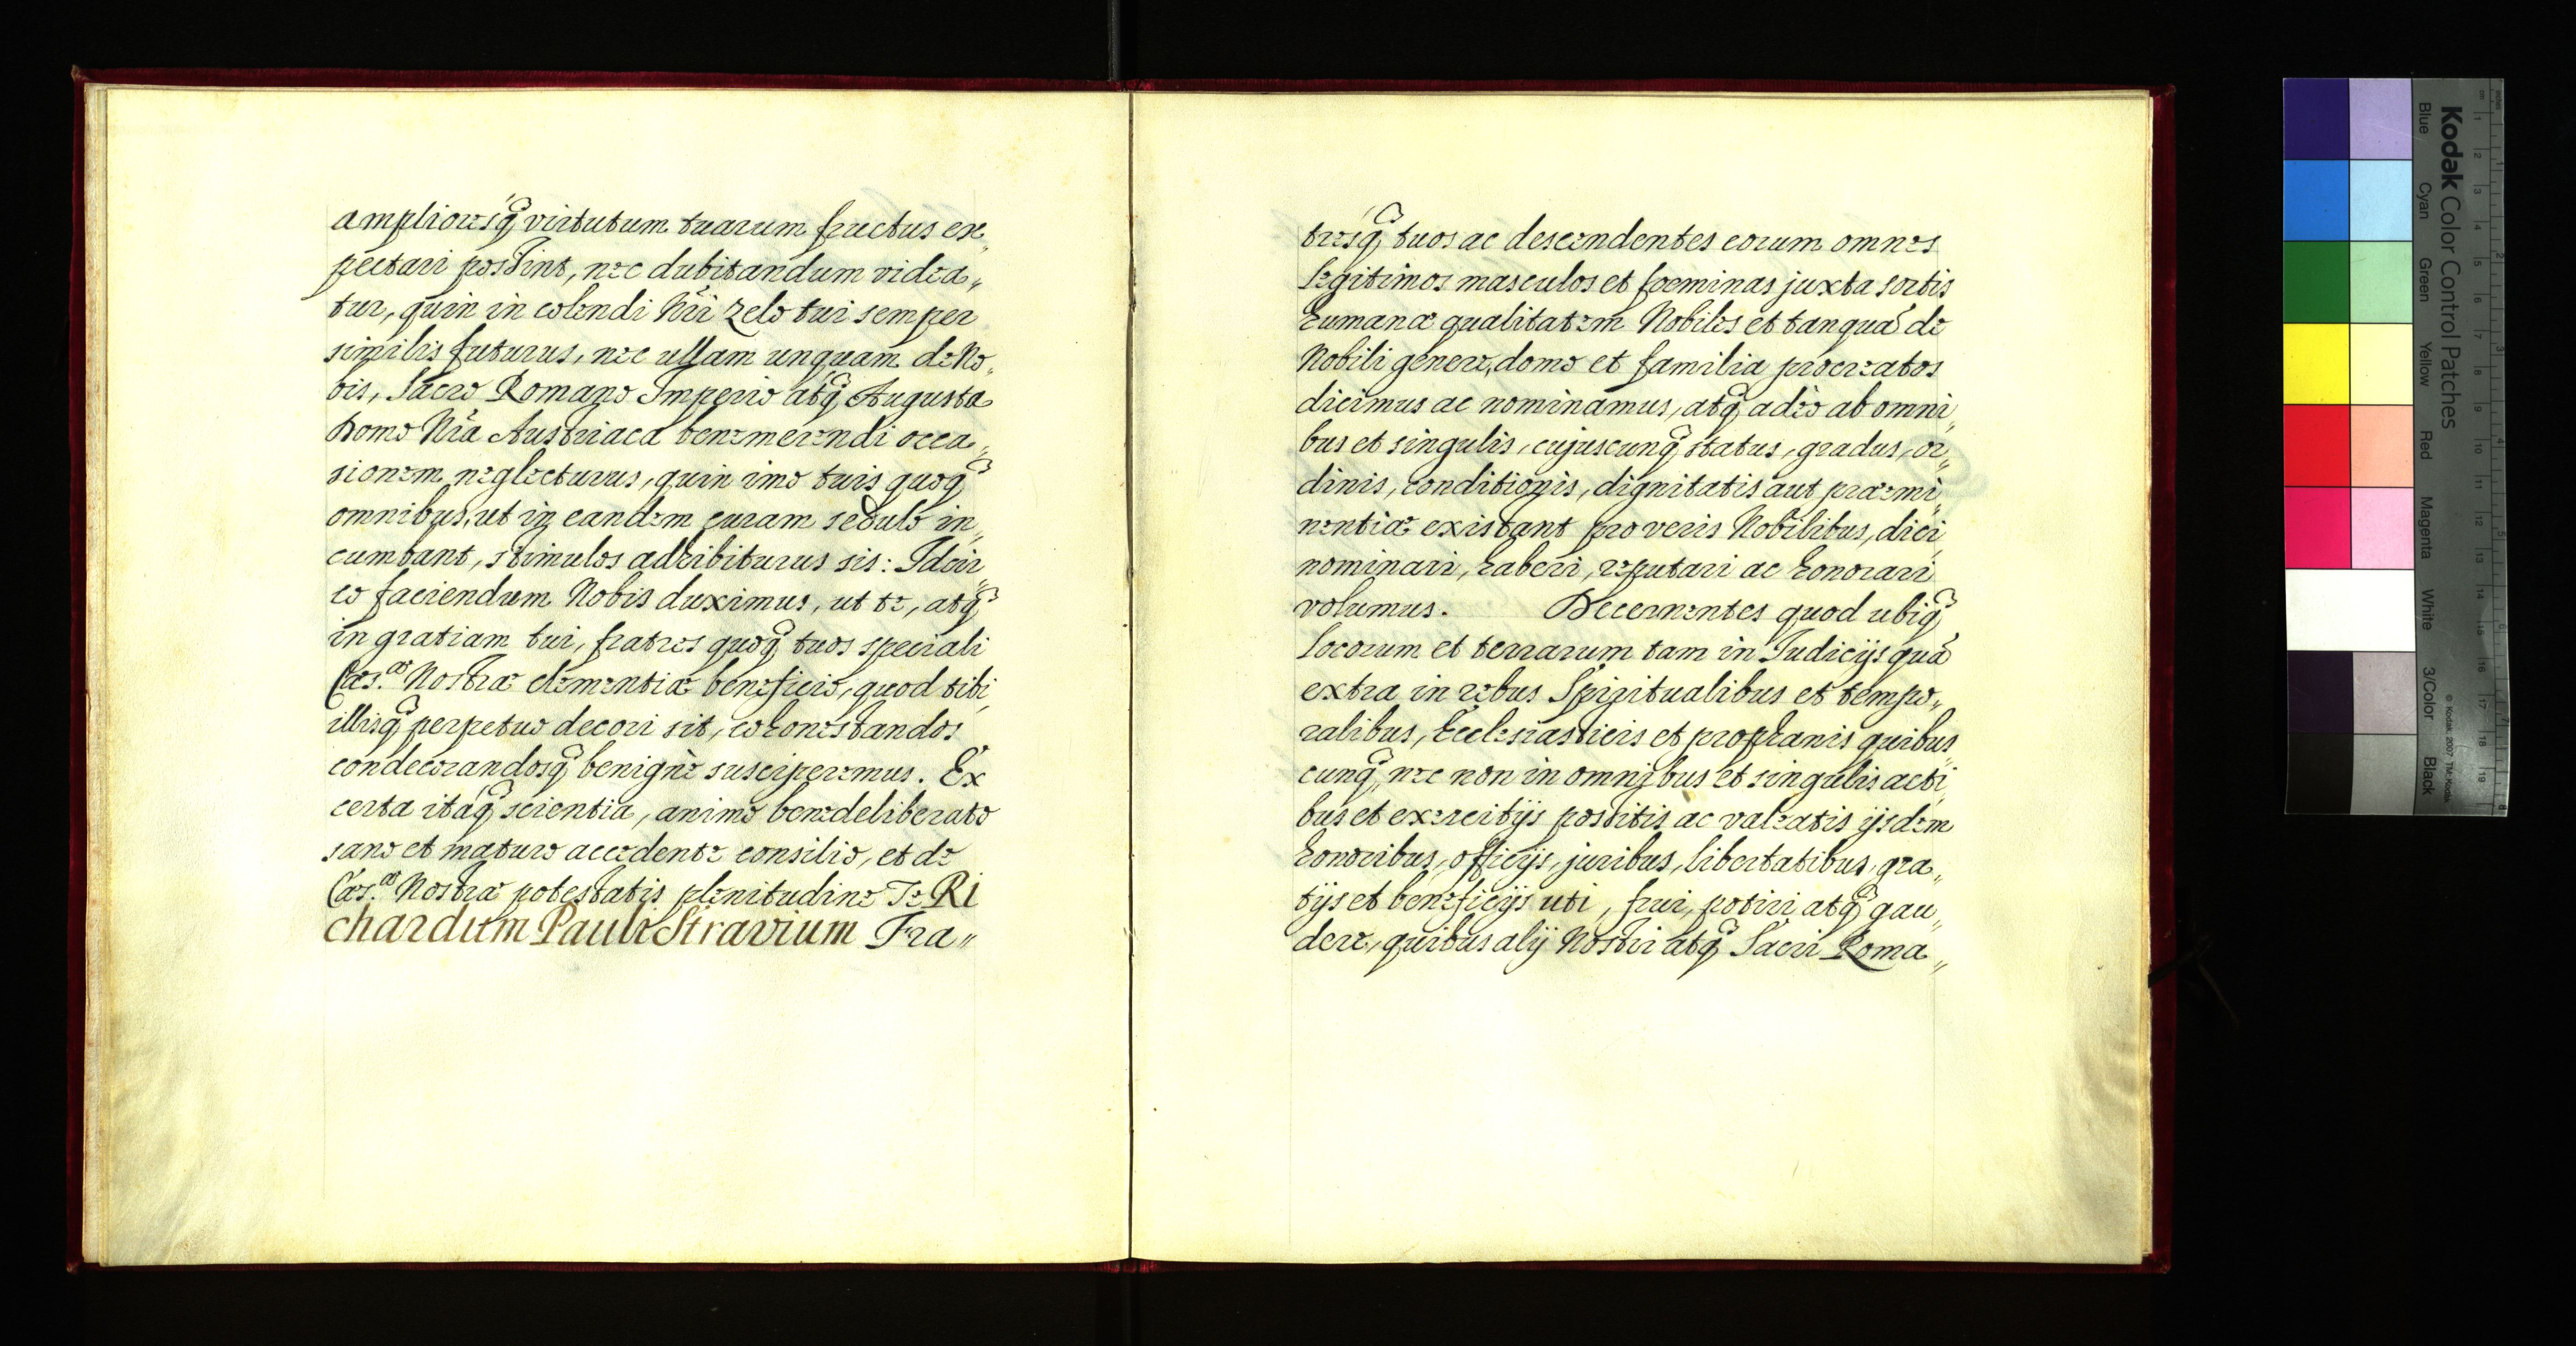 amplioresq́ virtutum tuarum fructus ex„
pectari possint, nec dubitandum videa„
tur, quin in colendi Nři zelo tui semper
similis futurus, nec ullam unquam de No„
bis, Sacro Romano Imperio atq́ Augusta
Domo Nřa Austriaca benemerendi occa„
sionem neglecturus, quin imo tuis quoq́
omnibus, ut in eandem curam sedulo in„
cumbant, stimulos adhibiturus sis: Idcir„
co faciendum Nobis duximus, ut te, atq́
in gratiam tui, fratres quoq́ tuos speciali
Cæs.ᵉᵃ Nostræ clementiæ beneficio, quod tibi
illisq́ perpetuo decori sit, cohonestandos
condecorandosq́ benignè susciperemus. Ex
certa itaq́ scientia, animo benedeliberato
sano et maturo accedente consilio, et de
Cæs.ᵉᵃ Nostræ potestatis plenitudine Te Ri
chardum Pauli Stravium Fra„
tresq́ tuos ac descendentes eorum omnes
legitimos masculos et foeminas juxta sortis
humanæ qualitatem Nobiles et tanquã de
Nobili genere, domo et familia procreatos
dicimus ac nominamus, atq́ adeò ab omni„
bus et singulis, cujuscunq́ status, gradus, or„
dinis, conditionis, dignitatis aut præemi„
nentiæ existant pro veris Nobilibus, dici,
nominari, haberi, reputari ac honorari
volumus. Decernentes quod ubiq́
locorum et terrarum tam in Iudicijs quã
extra in rebus Spiritualibus et tempo„
ralibus, Ecclesiasticis et prophanis quibus„
cunq́, nec non in omnibus et singulis acti„
bus et exercitijs possitis ac valeatis ijsdem
honoribus, officijs, juribus, libertatibus, gra„
tijs et beneficijs uti, frui, potiri atq́ gau„
dere, quibus alij Nostri atq́ Sacri Roma„
Kodak Color Control Patches
Blue Cyan Green Yellow Red Magenta White 3/Color Black